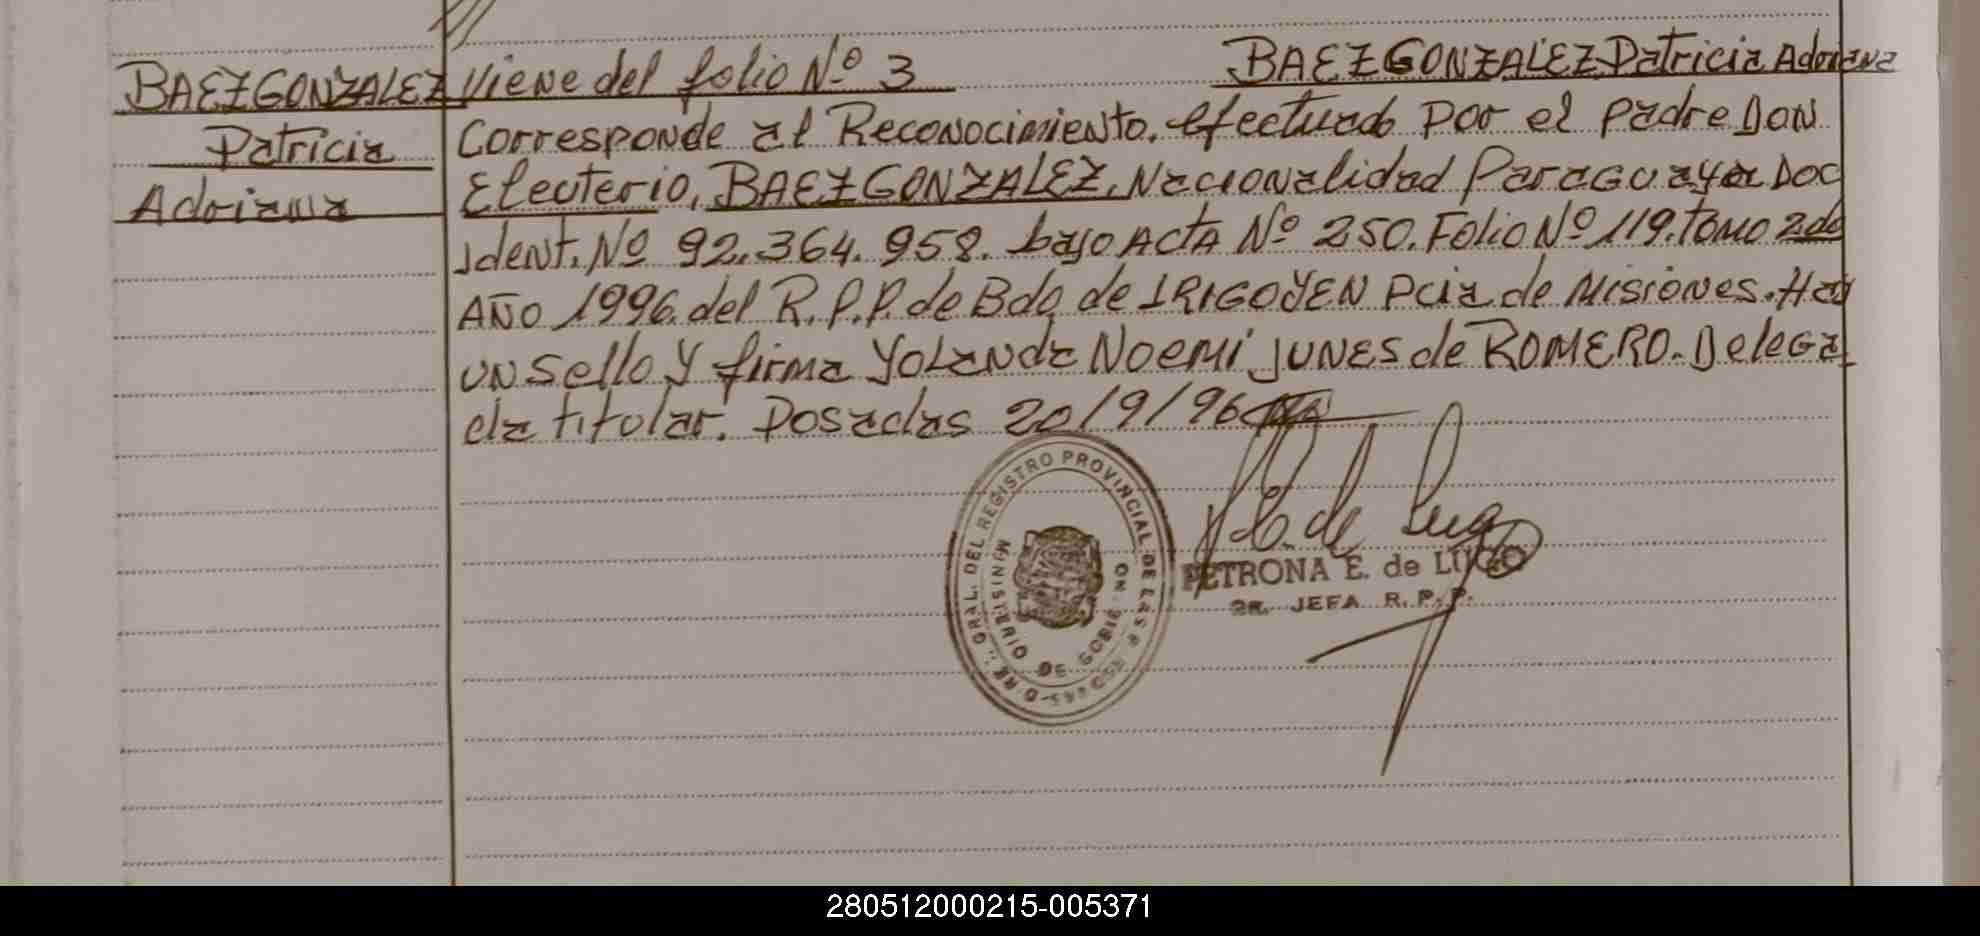 BAEZ GONZALEZ Patricia Adriana
Viene del folio Nº 3 BAEZ GONZALEZ Patricia Adriana
Corresponde al Reconocimiento. efectuado por el padre DON
Eleuterio, BAEZ GONZALEZ, Nacionalidad Paraguaya Doc
Ident. Nº 92.364.958. bajo ACTA Nº 250. Folio Nº 119. TOMO 2do
AÑO 1996. del R.P.P. de Bdo de IRIGOYEN Pcia de Misiones. Hay
un sello y firma YOLANDA NOEMI JUNES de ROMERO. Delega
da titular. Posadas 20/9/96
DEL REGISTRO PROVINCIAL DE LAS P
MINISTERIO DE GOBIERNO
PETRONA E. de LUGO
JEFA R.P.P.
280512000215-005371